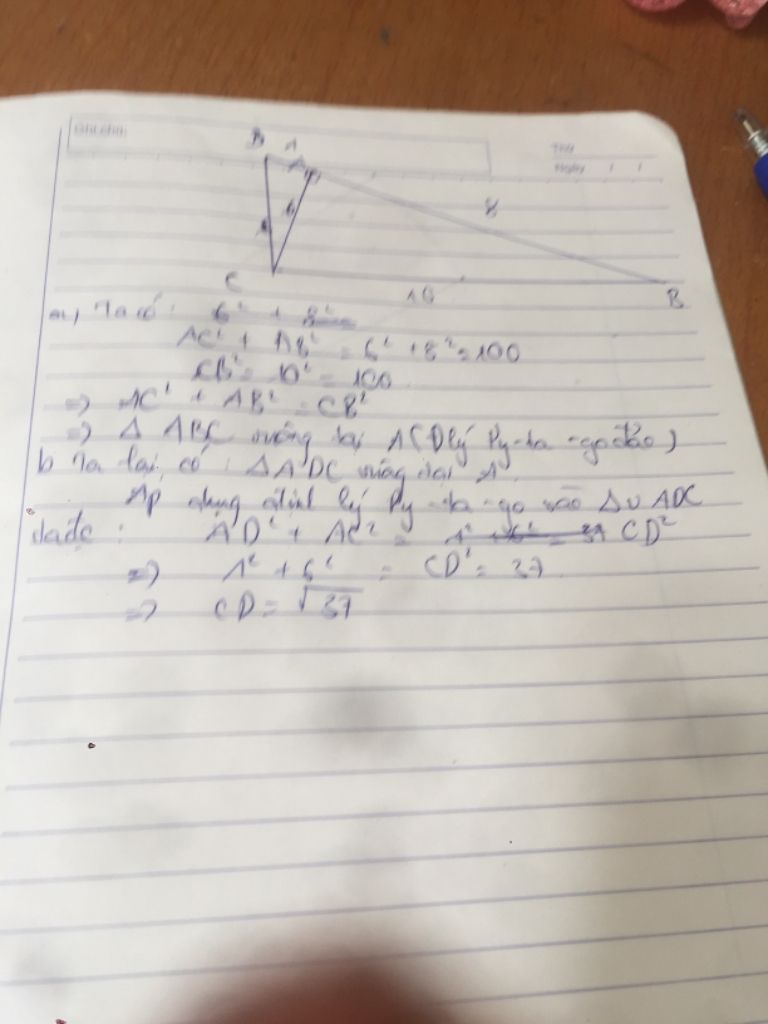 Ghi chú:
Thứ
Ngày / /
B 1 A
6 8
C 10 B
a, Ta có: 6² + 8²
AC² + AB² = 6² + 8² = 100
CB² = 10² = 100
=> AC² + AB² = CB²
=> Δ ABC vuông tại A (Đlý Py-ta-go đảo)
b Ta lại có: ΔADC vuông tại A
Áp dụng định lý Py-ta-go vào Δv ADC
ta đc: AD² + AC² = 1² + 6² = 37 CD²
=> 1² + 6² = CD² = 37
=> CD = √37